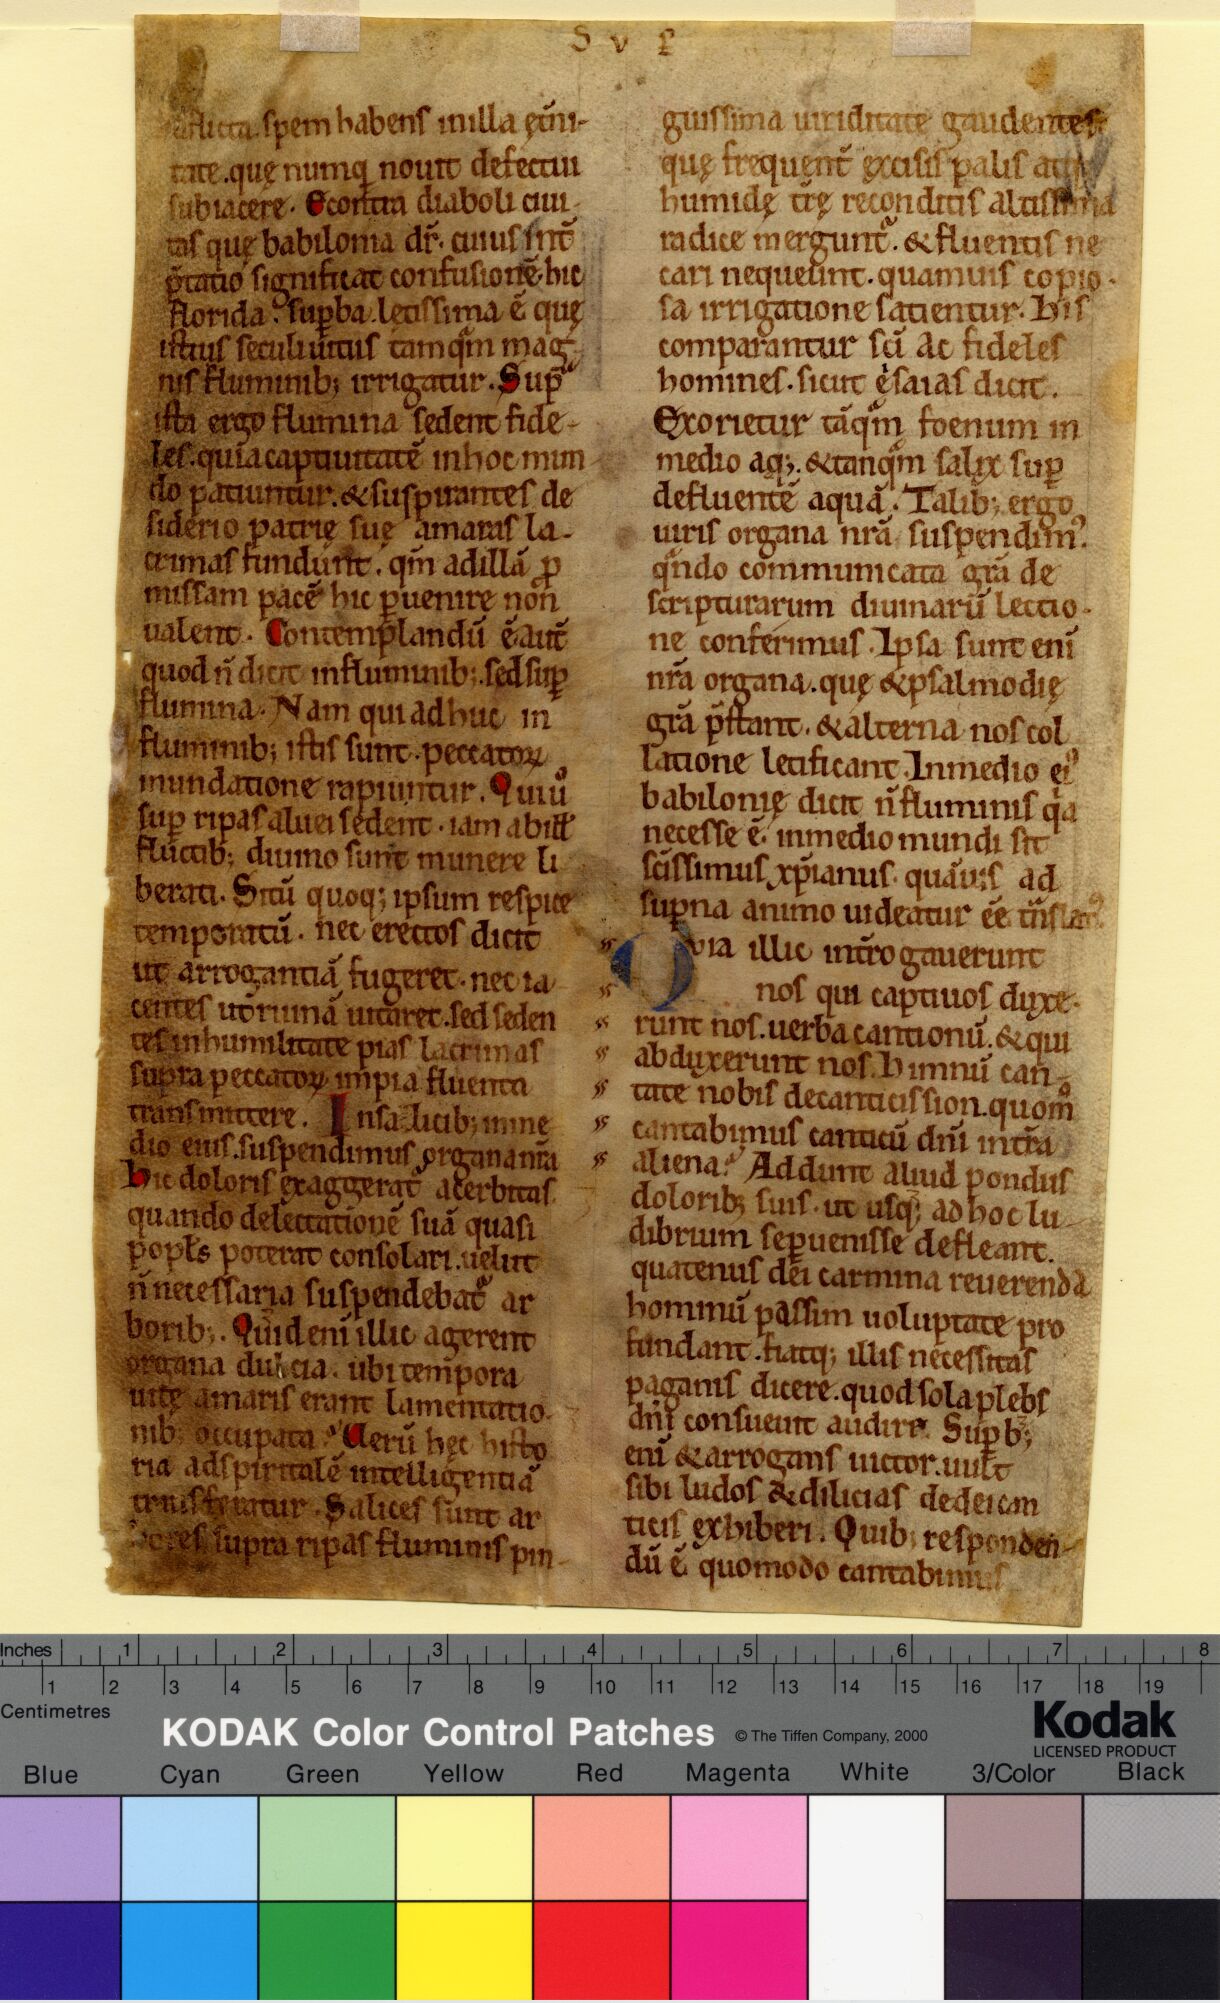 S V P
afflicta. spem habens in illa et̄ni-
tate. quę numq̄ nouit defectui
subiacere. Econtra diaboli ciui-
tas quę babilonia dr̄. cuius int̄
p̄tatio significat confusionē. hic
florida. supba. lętissima ē quę
istius seculi uitiis tamqm̄ mag-
nis fluminib; irrigatur. Sup̄
ista ergo flumina sedent fide-
les. quia captiuitatē in hoc mun
do patiuntur. & suspirantes de
siderio patrię suę amaras la-
crimas fundunt. qm̄ ad illā p
missam pacē hic puenire non
ualent. Contemplandū ē aūt
quod n̄ dicit in fluminib;. sed sup
flumina. Nam qui adhuc in
fluminib; istis sunt. peccatoꝝ
inundatione rapiuntur. Qui ů
sup ripas aluei sedent. iam ab illis
fluctib; diuino sunt munere li
berati. Sitū quoq; ipsum respice
temporatū. nec erectos dicit
ut arrogantiā fugeret. nec ia-
centes ut ruinā uitaret. sed seden
tes in humilitate pias lacrimas
supra peccatoꝝ impia fluenta
transmittere. In salicib; in me
dio eius. suspendimus organa nr̄a
Hic doloris exaggerat᷑ acerbitas.
quando delectationē suā quasi
popl̄s poterat consolari. uelut
n̄ necessaria suspendebat᷑ ar
borib;. Quid enī illic agerent
organa dulcia. ubi tempora
uitę amaris erant lamentatio-
nib; occupata? Uerū hęc histo
ria ad spiritalē intelligentiā
transferatur. Salices sunt ar
bores supra ripas fluminis pin-
guissima uiriditate gaudentes.
quę frequent̄ excisis palis atq;
humidę tr̄ę reconditis altissima
radice mergunt᷑. & fluentis ne
cari nequeunt. quamuis copio-
sa irrigatione satientur. His
comparantur sc̄i ac fideles
homines. sicut ęsaias dicit.
Exorietur tāqm̄ foenum in
medio aq;. & tanqm̄ salix sup
defluentē aquā. Talib; ergo
uiris organa nr̄a suspendim᷒.
qn̄do communicata gr̄a de
scripturarum diuinarū lectio-
ne conferimus. Ipsa sunt enī
nr̄a organa. quę & psalmodię
gr̄a p̄stant. & alterna nos col
latione letificant. In medio ei᷒
babilonię dicit n̄ fluminis qa
necesse ē. in medio mundi sit
sc̄issimus xp̄ianus. quāuis ad
supna animo uideatur ēē tn̄slat᷒.
Quia illic int̄rogauerunt
nos qui captiuos duxe-
runt nos. uerba cantionū. & qui
abduxerunt nos. Himnū can-
tate nobis de canticis sion. quom̊
cantabimus canticū dn̄i in tr̄a
aliena? Addunt aliud pondus
dolorib; suis. ut usq; ad hoc lu
dibrium se puenisse defleant.
quatenus dei carmina reuerenda
hominū passim uoluptate pro
fundant. fiatq; illis necessitas
paganis dicere. quod sola plebs
dn̄i consueuit audire. Supb;
enī & arrogans uictor. uult
sibi ludos & dilicias de dei can
ticis exhiberi. Quib; responden-
dū ē quomodo cantabimus
Inches 1 2 3 4 5 6 7 8
1 2 3 4 5 6 7 8 9 10 11 12 13 14 15 16 17 18 19
Centimetres
KODAK Color Control Patches © The Tiffen Company, 2000 Kodak
LICENSED PRODUCT
Blue Cyan Green Yellow Red Magenta White 3/Color Black